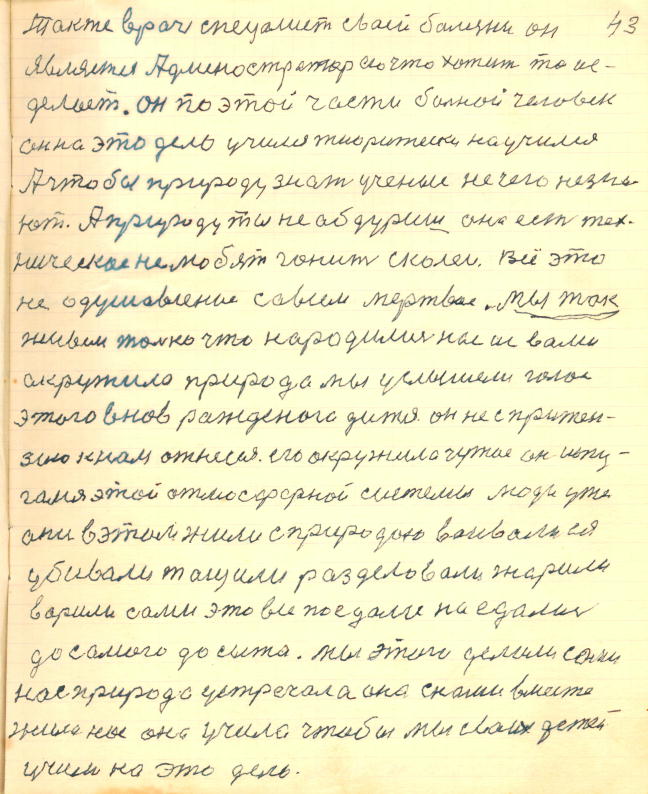 43
Также врач специалист своей болезни он
является Админостратор ето что хотит то и с-
делает. он по этой части болной человек
он на это дело учился теоритически научился
А чтобы природу знат ученые нечего не зна-
ют. А природу ты не абдуриш она ест тех-
ническое не любят гонит сколел. Всё это
не одушавленые савсем мертвое. мы так
живем толко что народилися нас и вами
акружила природа мы услышели голос
этого внов рожденого дитя он не с притен-
зию к нам отнесся. его окружила чужое он испу-
гался этой атмосферной системы люди уже
они в этом жили с природою воивалися
убивали тащили разделовали жарили
варили сами это все поедали наедалися
до самого досыта. мы этого делали сами
нас природа устречала она с нами вместе
жила нас она учила чтобы мы своих детей
учили на это дело.